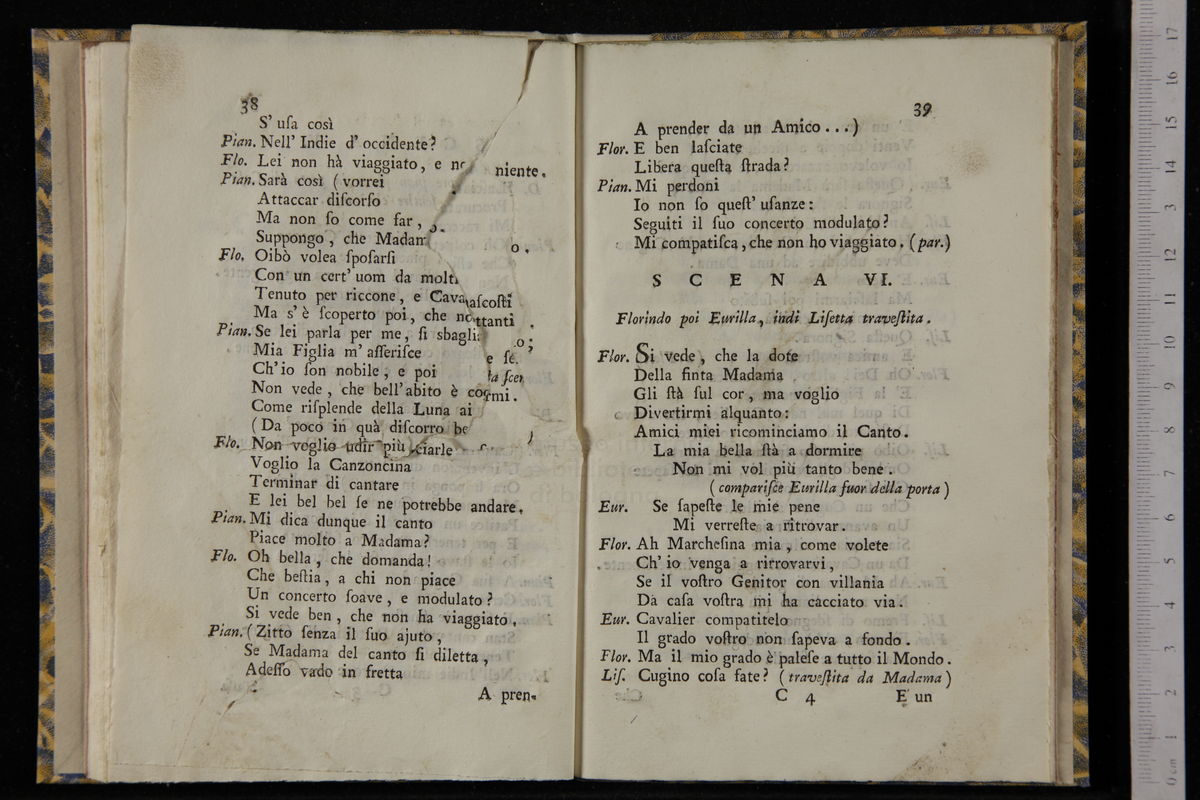 38
S' uſa così
Pian. Nell' Indie d' occidente?
Flo. Lei non hà viaggiato, e niente.
Pian. Sarà così (vorrei
Attaccar diſcorſo
Ma non ſo come far,
Suppongo, che Madam
Flo. Oibò volea ſpoſarſi
Con un cert' uom da molti
Tenuto per riccone, e Cava aſcoſti
Ma s' è ſcoperto poi, che ttanti
Pian. Se lei parla per me, ſi sbagli
Mia Figlia m' aſſeriſce
Ch' io ſon nobile, e poi
Non vede, che bell' abito è
Come riſplende della Luna ai
(Da poco in quà diſcorro be
Flo. Non voglio udir più ciarle
Voglio la Canzoncina
Terminar di cantare
E lei bel bel ſe ne potrebbe andare.
Pian. Mi dica dunque il canto
Piace molto a Madama?
Flo. Oh bella, che domanda!
Che beſtia, a chi non piace
Un concerto ſoave, e modulato?
Si vede ben, che non ha viaggiato.
Pian. (Zitto ſenza il ſuo ajuto,
Se Madama del canto ſi diletta,
Adeſſo vado in fretta
A pren-
39
A prender da un Amico...)
Flor. E ben laſciate
Libera queſta ſtrada?
Pian. Mi perdoni
Io non ſo queſt' uſanze:
Seguiti il ſuo concerto modulato?
Mi compatiſca, che non ho viaggiato. (par.)
SCENA VI.
Florindo poi Eurilla, indi Liſetta traveſtita.
Flor. Si vede, che la dote
Della finta Madama
Gli ſtà ſul cor, ma voglio
Divertirmi alquanto:
Amici miei ricominciamo il Canto.
La mia bella ſtà a dormire
Non mi vol più tanto bene.
(compariſce Eurilla fuor della porta)
Eur. Se ſapeſte le mie pene
Mi verreſte a ritrovar.
Flor. Ah Marcheſina mia, come volete
Ch' io venga a ritrovarvi,
Se il voſtro Genitor con villania
Da caſa voſtra mi ha cacciato via.
Eur. Cavalier compatitelo
Il grado voſtro non ſapeva a fondo.
Flor. Ma il mio grado è paleſe a tutto il Mondo.
Liſ. Cugino coſa fate? (traveſtita da Madama)
C 4 E un